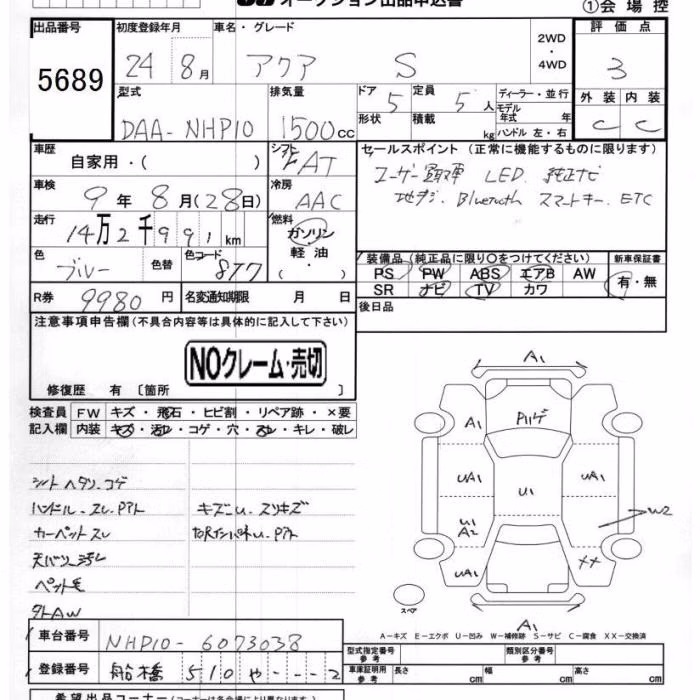 オークション出品申込書 ①会場控
出品番号 初度登録年月 車名・グレード 2WD・4WD 評価点
5689 24 8月 アクア S 3
型式 排気量 ドア 5 定員 5人 ディーラー・並行 外装 内装
DAA-NHP10 1500cc 形状 積載 kg モデル年式 年 ハンドル 左・右 C C
車歴 自家用・( ) シフト FAT セールスポイント (正常に機能するものに限ります)
車検 9年8月(28日) 冷房 AAC ユーザー買取車 LED 純正ナビ
地デジ. Bluetooth スマートキー. ETC
走行 14万2千991km 燃料 ガソリン・軽油・( )
色 ブルー 色替 色コード 8T7 装備品 (純正品に限り○をつけてください) 新車保証書
PS PW ABS エアB AW 有・無
R券 9980円 名変通知期限 月 日 SR ナビ TV カワ
注意事項申告欄 (不具合内容等は具体的に記入して下さい) 後日品
NOクレーム・売切
修復歴 有 [箇所 ]
検査員 FW キズ・飛石・ヒビ割・リペア跡・×要
記入欄 内装 キズ・汚レ・コゲ・穴・スレ・キレ・破レ
シートヘタリ.コゲ
ハンドル.スレ.Pアト キズ小U.スリキズ
カーペットスレ Pアト
天バリ汚レ
ペット毛
外AW
A1
A1 P川ゲ
UA1 U1 UA1
U1
A2 W2
UA1 XX
A1
スペア
A-キズ E-エクボ U-凹み W-補修跡 S-サビ C-腐食 XX-交換済
車台番号 NHP10-6073038 型式指定番号 参考 類別区分番号 参考
登録番号 船橋 510 や ・・・2 車庫証明用 参考 長さ cm 幅 cm 高さ cm
希望出品コーナー(コーナーは各会場により異なります)